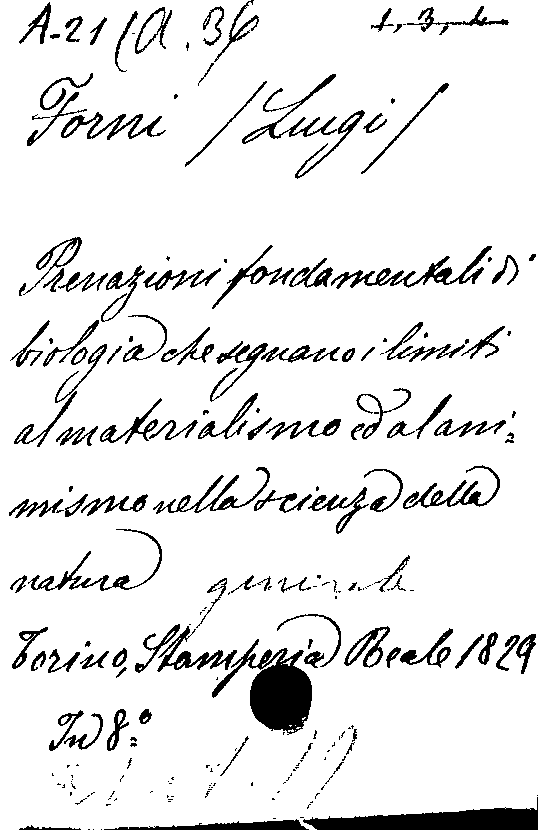 A-21 (A. 36 1, 3, 4
Forni /Luigi/
Prenazioni fondamentali di
biologia che segnano i limiti
al materialismo ed al ani=
mismo nella scienza della
natura generale
Torino, Stamperia Reale 1829
In 8.º